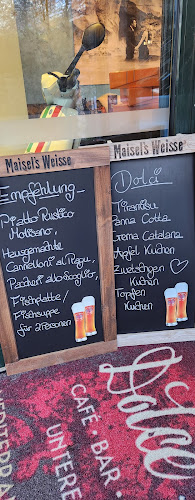 Maisel's Weisse
Empfehlung
Piatto Rustico
Molisano,
Hausgemachte
Cannelloni al Ragu,
Paccheri allo Scoglio,
Fischplatte /
Fischsuppe
für 2 Personen
Maisel's Weisse
Dolci
Tiramisu
Panna Cotta
Crema Catalana
Apfel Kuchen
Zwetschgen
Kuchen
Topfen
Kuchen
Dolce
CAFE • BAR
UNTERE